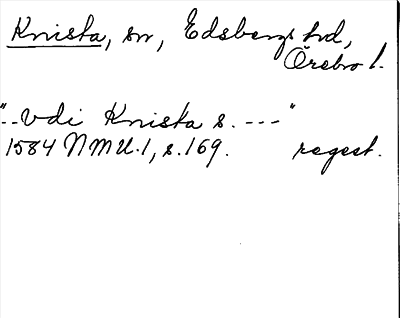 Knista, sn, Edsbergs hd,
Örebro l.
"--Vdi Knista s. ---"
1584 NMU.1, s.169. regest.